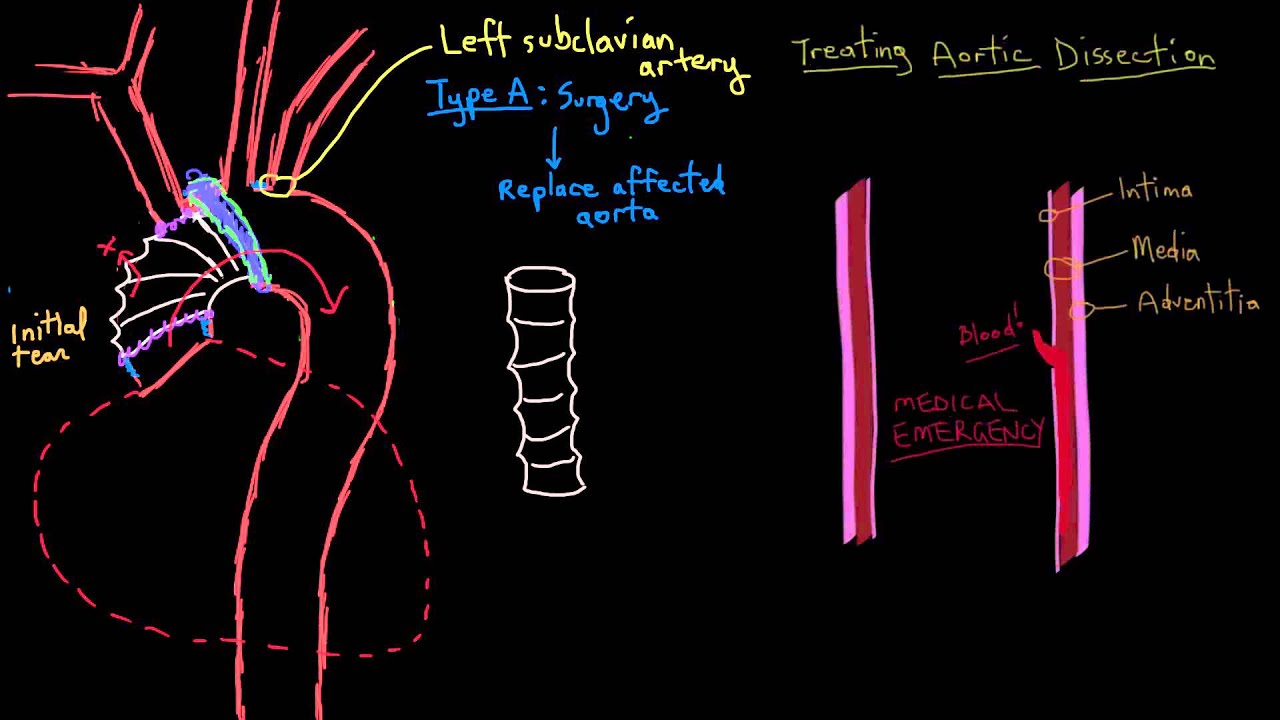 Left subclavian
artery
Type A: Surgery
Replace affected
aorta
Initial
tear
Treating Aortic Dissection
Intima
Media
Adventitia
Blood!
MEDICAL
EMERGENCY